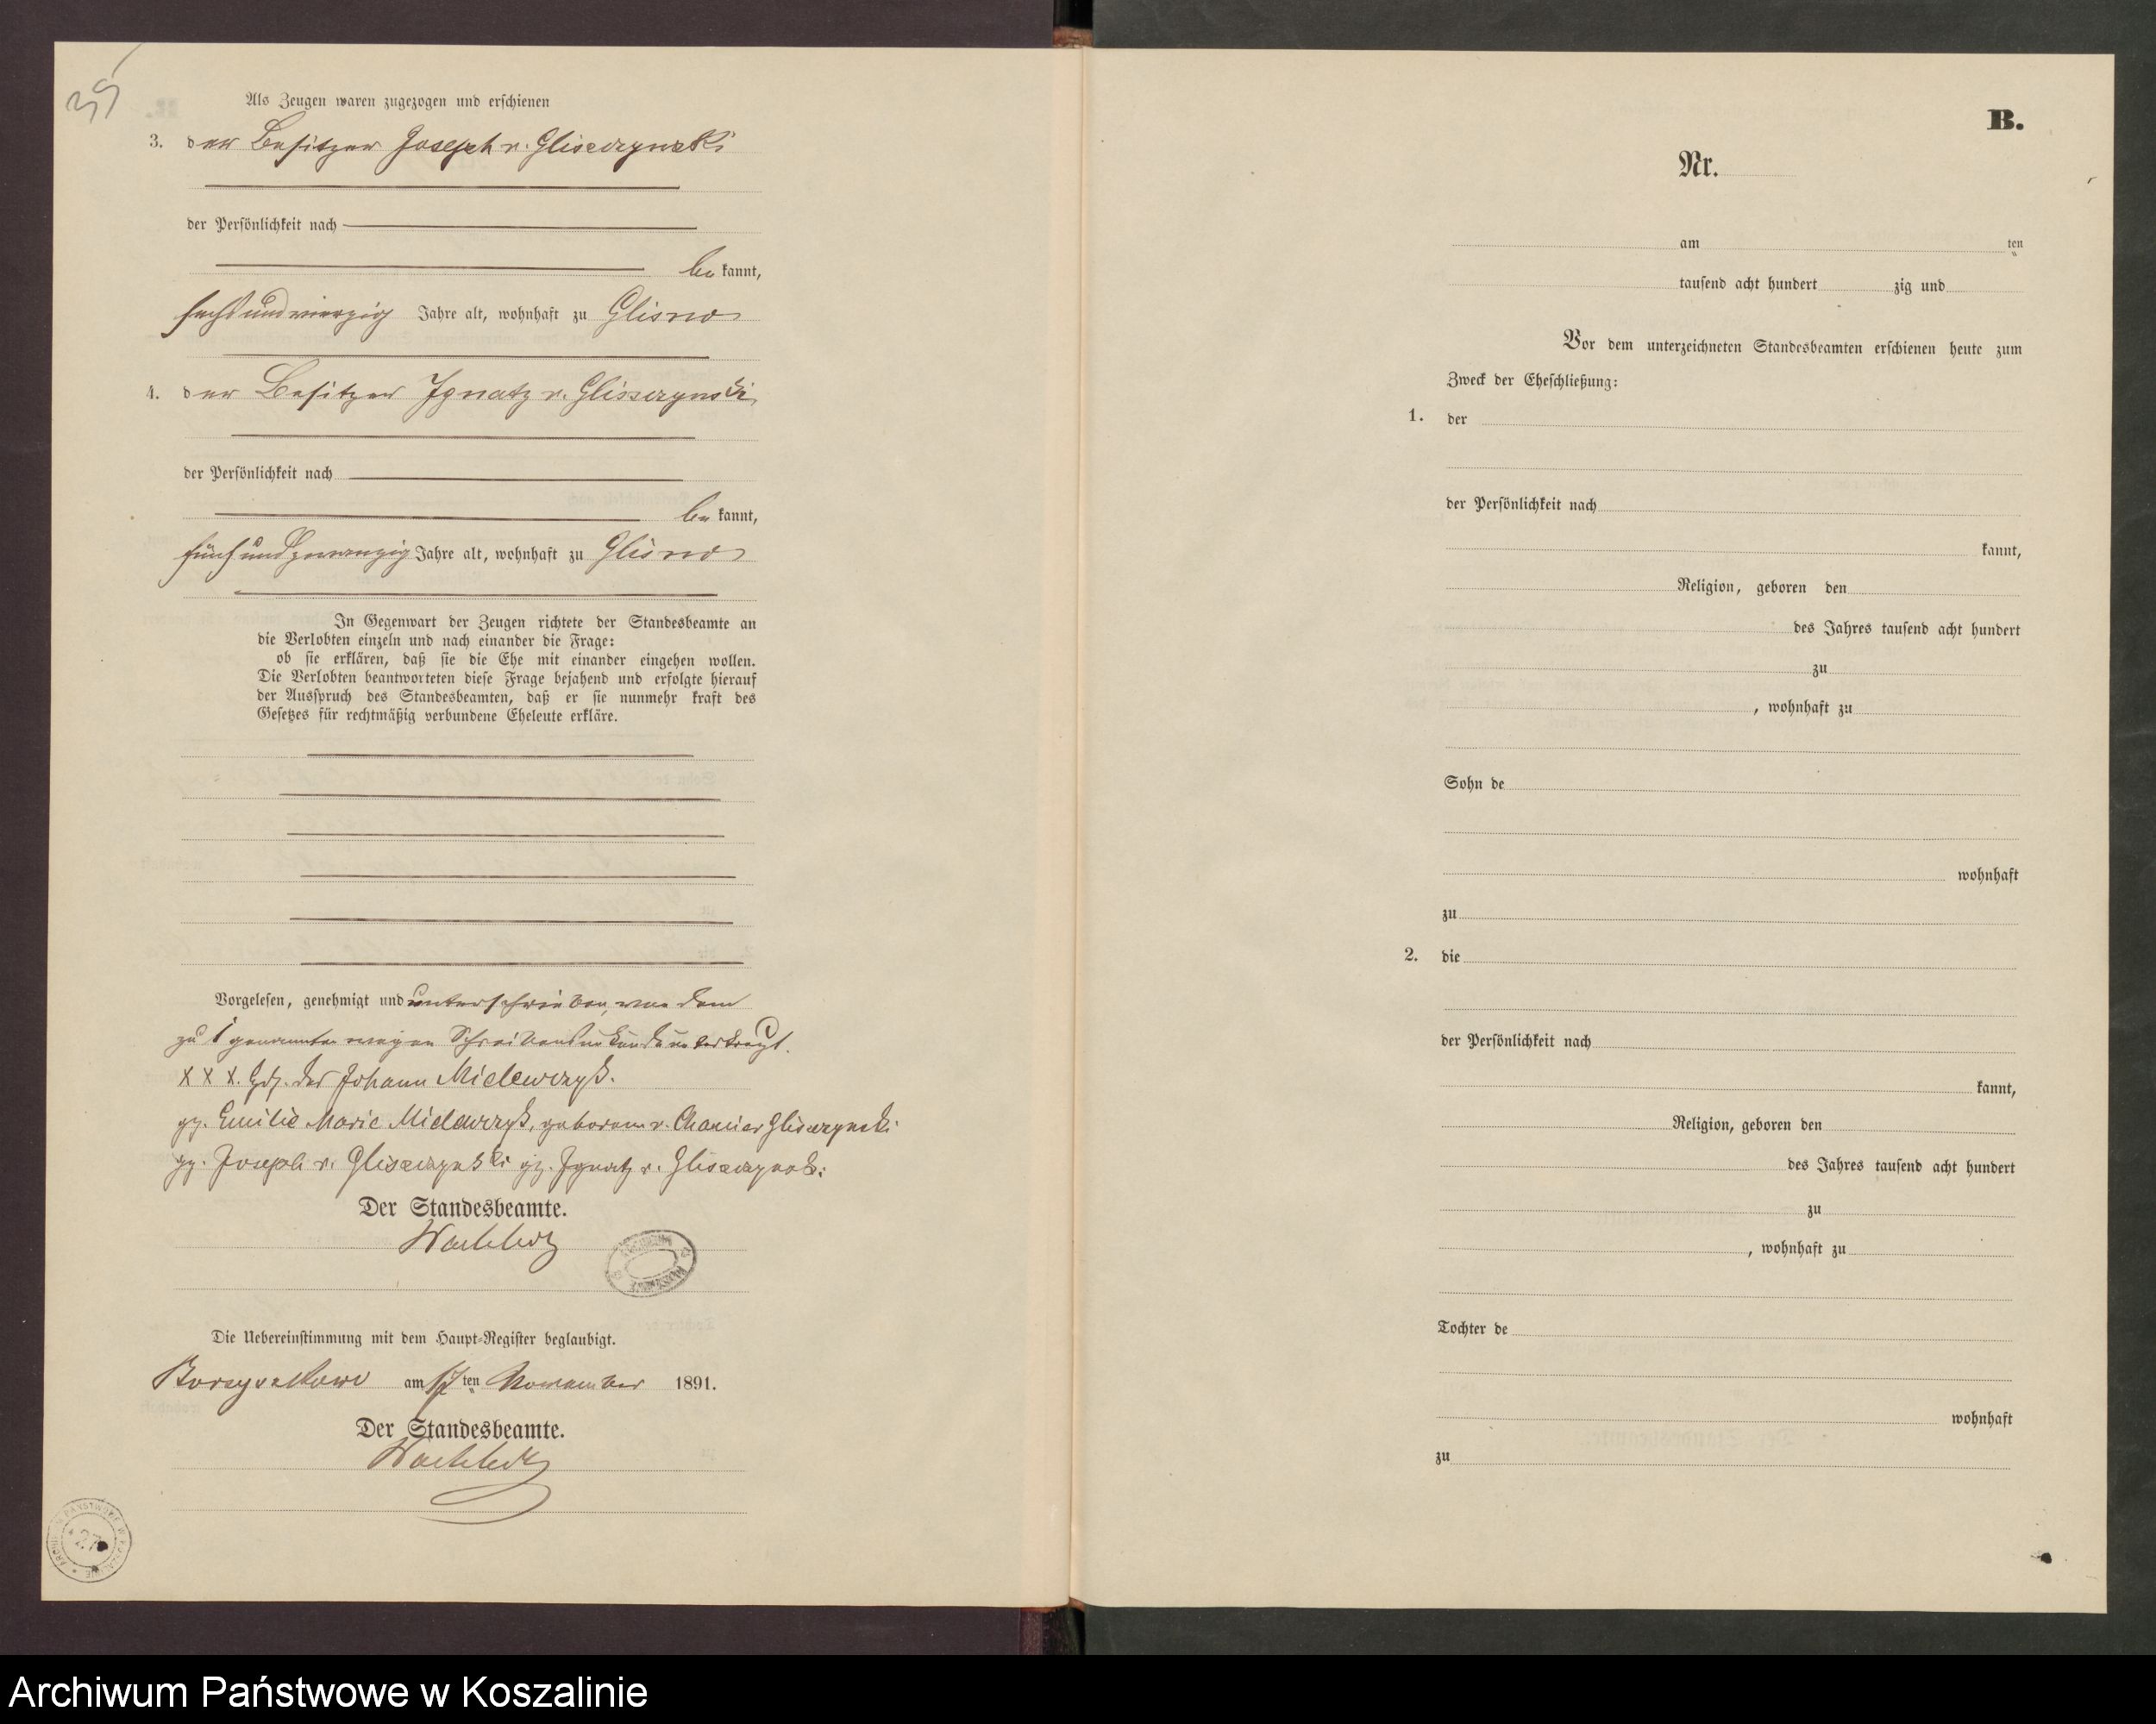 39
Als Zeugen waren zugezogen und erschienen
3. der Besitzer Joseph v. Gliszczynski
der Persönlichkeit nach
be kannt,
sechsundvierzig Jahre alt, wohnhaft zu Glisno
4. der Besitzer Ignatz v. Gliszczynski
der Persönlichkeit nach
be kannt,
fünfundzwanzig Jahre alt, wohnhaft zu Glisno
In Gegenwart der Zeugen richtete der Standesbeamte an
die Verlobten einzeln und nach einander die Frage:
ob sie erklären, daß sie die Ehe mit einander eingehen wollen.
Die Verlobten beantworteten diese Frage bejahend und erfolgte hierauf
der Ausspruch des Standesbeamten, daß er sie nunmehr kraft des
Gesetzes für rechtmäßig verbundene Eheleute erkläre.
Vorgelesen, genehmigt und unterschrieben, von dem
zu 1 genannten wegen Schreibensunkunde unterkreuzt.
X X X. Hdz. des Johann Mielewczyk.
gz. Emilie Marie Mielewczyk, geborene v. Chamier Gliszczynski
gz. Joseph v. Gliszczynski gz. Ignatz v. Gliszczynski
Der Standesbeamte.
Die Uebereinstimmung mit dem Haupt-Register beglaubigt.
Borzyskowo am 17ten November 1891.
Der Standesbeamte.
ARCHIWUM PAŃSTWOWE W KOSZALINIE
27
B.
Nr.
am ten
tausend acht hundert zig und
Vor dem unterzeichneten Standesbeamten erschienen heute zum
Zweck der Eheschließung:
1. der
der Persönlichkeit nach
kannt,
Religion, geboren den
des Jahres tausend acht hundert
zu
, wohnhaft zu
Sohn de
wohnhaft
zu
2. die
der Persönlichkeit nach
kannt,
Religion, geboren den
des Jahres tausend acht hundert
zu
, wohnhaft zu
Tochter de
wohnhaft
zu
Archiwum Państwowe w Koszalinie